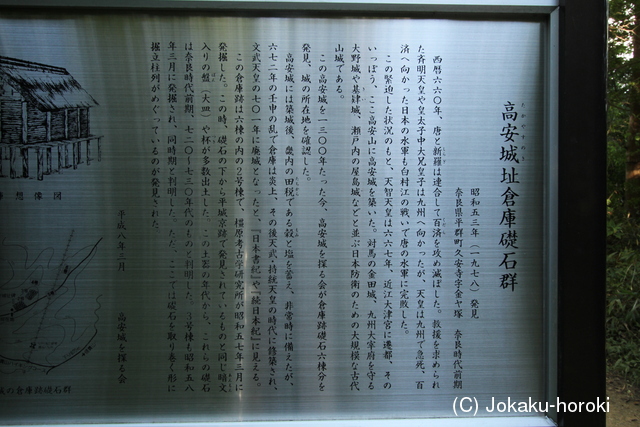 高安城址倉庫礎石群
たかやすのき
昭和五三年(一九七八)発見
奈良県平群町久安寺字金ヤ塚 奈良時代前期
西暦六六〇年、唐と新羅は連合して百済を攻め滅ぼした。救援を求められ
た斉明天皇や皇太子中大兄皇子は九州へ向かったが、天皇は九州で急死。百
済へ向かった日本の水軍も白村江の戦いで唐の水軍に完敗した。
この緊迫した状況のもと、天智天皇は六六七年、近江大津宮に遷都、その
いっぽう、ここ高安山に高安城を築いた。対馬の金田城、九州大宰府を守る
大野城や基肄城、瀬戸内の屋島城などと並ぶ日本防衛のための大規模な古代
山城である。
この高安城を一三〇〇年たった今、高安城を探る会が倉庫跡礎石六棟分を
発見、城の所在地を確認した。
高安城には築城後、畿内の田税である穀と塩を蓄え、非常時に備えたが、
六七二年の壬申の乱で倉庫は炎上、その後天武・持統天皇の時代に修築され、
文武天皇の七〇一年に廃城となったと、『日本書紀』や『続日本紀』に見える。
この倉庫跡は六棟の内の2号棟で、橿原考古学研究所が昭和五七年三月に
発掘した。この時、礎石の下から平城京跡で発見されているものと同じ暗文
入りの盤(大皿)や杯が多数出土した。この土器の年代から、これらの礎石
は奈良時代前期、七二〇〜七三〇年代のものと判明した。3号棟も昭和五八
年三月に発掘され、同時期と判明した。ただ、ここでは礎石を取り巻く形に
掘立柱列がめぐっているのが発見された。
平成八年三月 高安城を探る会
想像図
の倉庫跡礎石群
(C) Jokaku-horoki